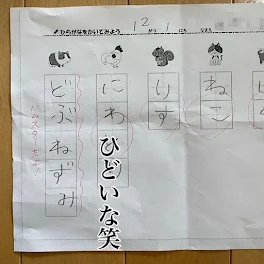 ひらがなをかいてみよう
12 がつ 1 にち なまえ
どぶねずみ
にわ
りす
ねこ
ハムスター
ひどいな笑